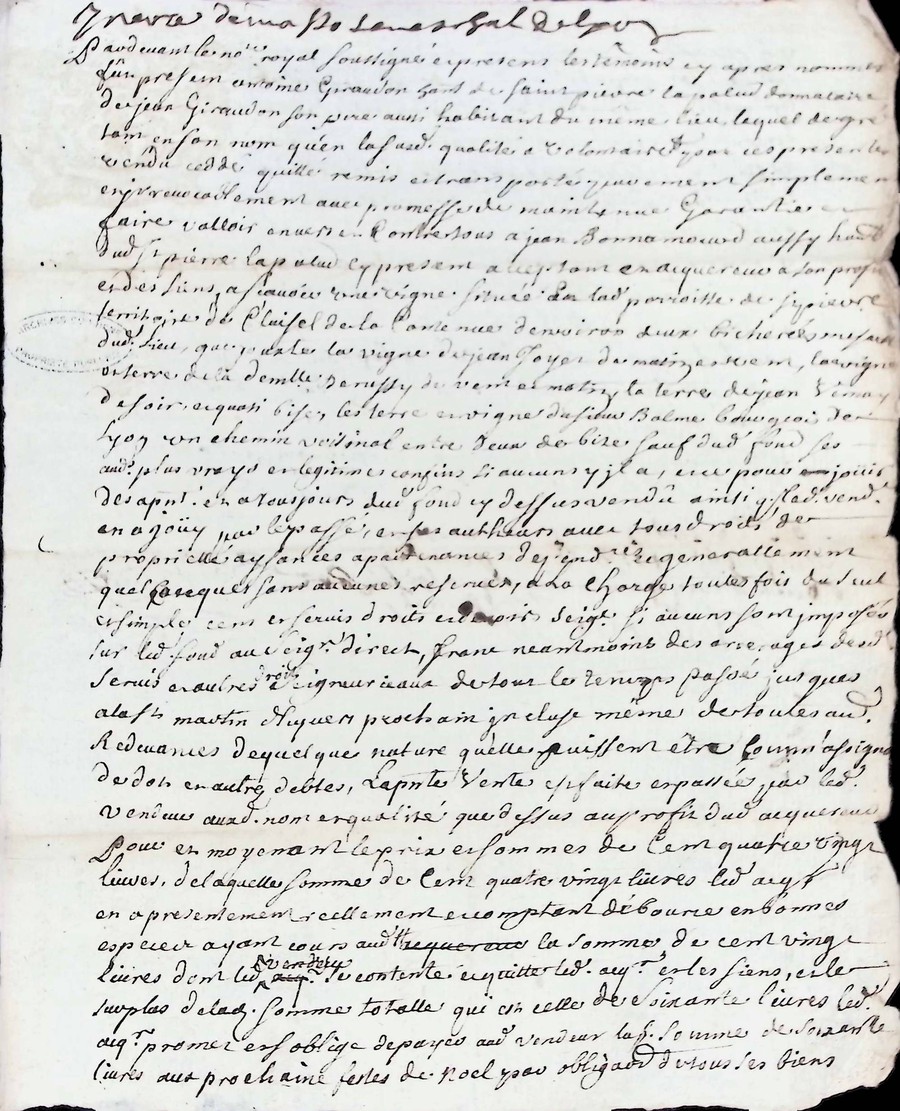 Pardevant le no.re royal soussigné et presens les temoins cy apres nommés
fûr present antoine Giraudon hant. de saint pierre la palud donnataire
de jean Giraudon son pere aussi habitant du même lieu, lequel de gré
tant en son nom qu'en lasusd. qualité a volontairem.t par ces presentes
vendu ceddé quitté remis et transporté purement simplement
et jrrevocablement avec promesse de maintenue Garantie et
faire valloir envers et Contre tous a jean Bonnamour aussy hant.
dud. St. pierre la palud cy present acceptant et acquereur a son profit
et des siens, a scavoir une vigne située En lad. parroisse de St pierre
territoire de Cluisel de la Contenue d'environ deux bicherées mesure
dud. Lieu, que jouxte la vigne de jean Joyet de matin et vent, la vigne
et terre de la demlle. Derussy de vent et matin, la terre de jean
de soir et quasi bise, les terre et vigne du sieur Balme bourgeois de
Lyon un chemin voisinal entre deux de bize sauf dud. fond ses
autr. plus vrays et legitimes confins si aucuns y jl a, et ce pour en jouir
des aprnt. et a tousjours dud. fond cy dessus vendu ainsi q. led. vendr.
en a joüy par le passé, et ses autheurs avec tous droits de
proprietté aysances apartenances dependces. et generallement
quelconques sans aucunes reserves, a La Charge toutes fois du seul
et simple cens et servis droits et devoirs seigx. si aucuns sont jmposés
sur led. fond au seigr. direct, franc neantmoins des arrerages desd.
servis et autres droits seigneuriaux de tout le temps passé jusques
a la St. martin d'hyvers prochain jncluse même de toutes autr.
Redevances de quelque nature qu'elle puissent être comm'assigna
de dot et autres debtes, La pnte Vente est faite et passée par led.
vendeur auxd. nom et qualité que dessus au profit dud. acquereur
Pour et moyenant le prix et sommes de Cent quatre vingt
livres, de laquelle somme de Cent quatre vingt livres led. acqr.
en a presentement reellement et comptant débourcé en bonnes
especes ayant cours aud. acquereur la somme de cent vingt
livres dont led. vendeur acqr. se contente et quitte led. acqr. et les siens, et le
surplus de lad. somme totalle qui est celle de soixante livres led.
acqr. promet et s'oblige de payer aud. vendeur lasd. somme de soixante
livres aux prochaine festes de Noel par oblig.aon de tous ses biens